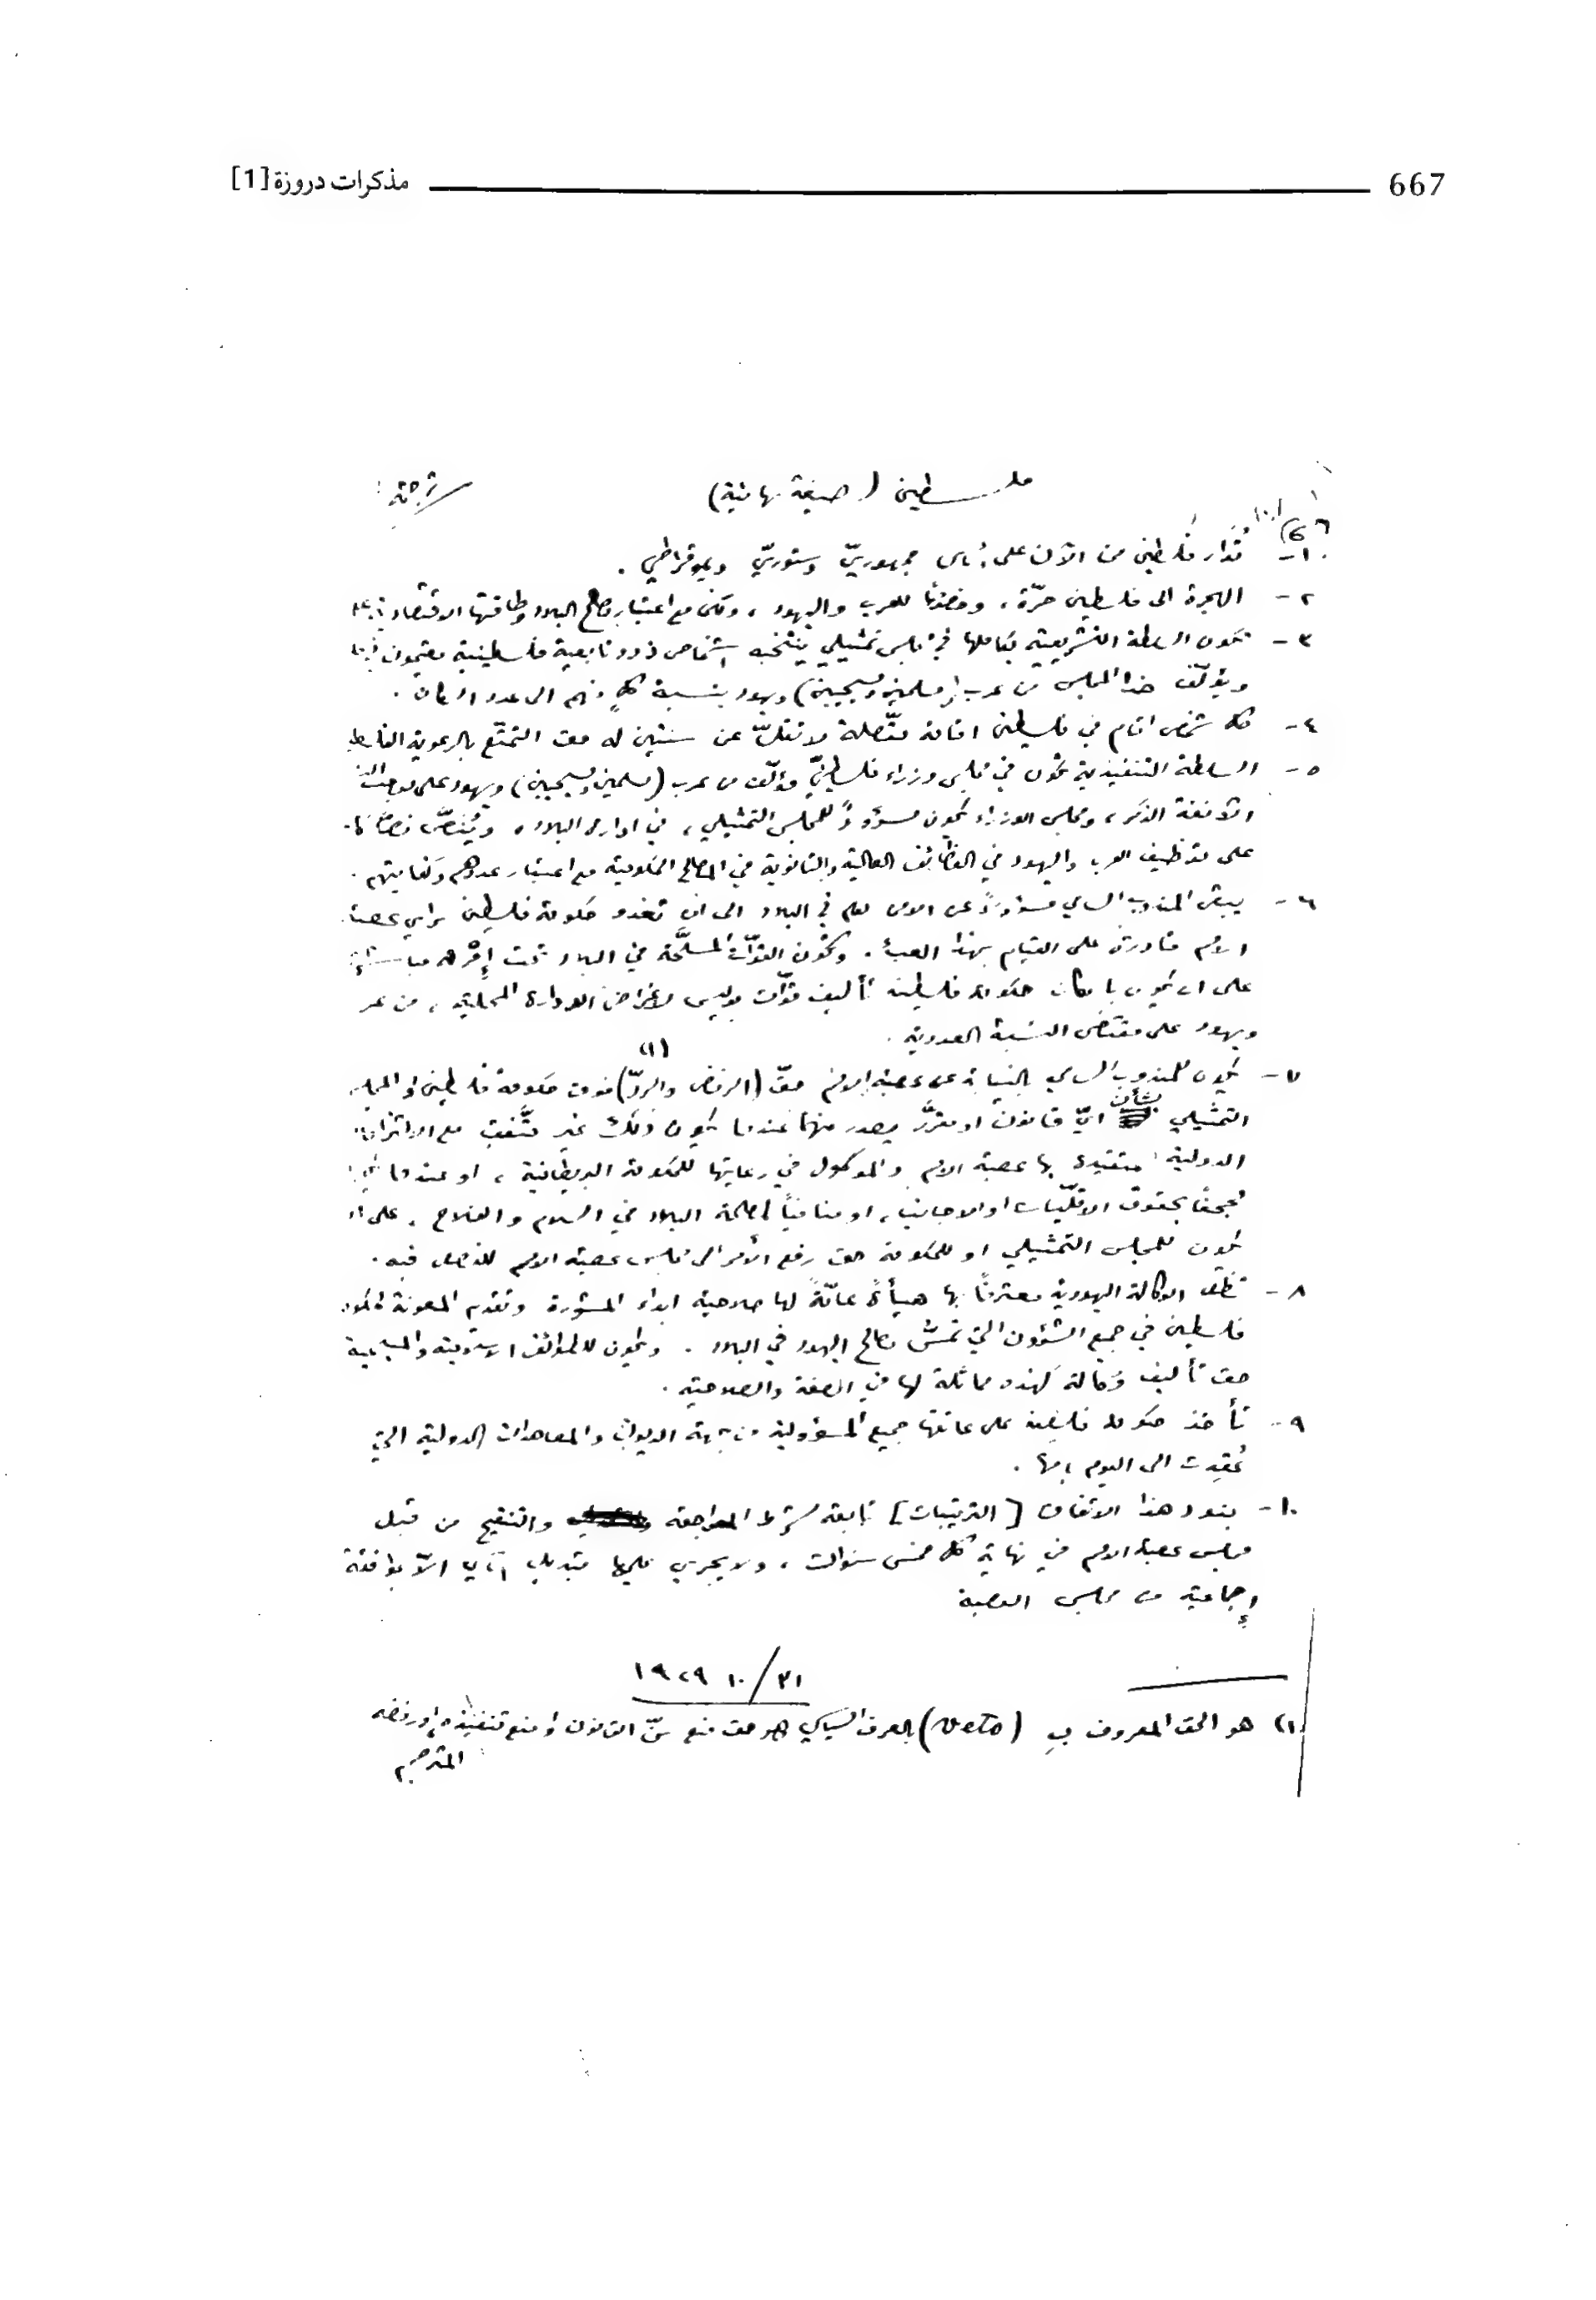 667 مذكرات دروزة [1]
فلسطين (صيغة نهائية) ترجمة :
١- تُدار فلسطين من الآن على أساس جمهوريّ دستوريّ ديموقراطي .
٢- الهجرة الى فلسطين حرّة، للعرب واليهود، ولكن مع اعتبار مصالح البلاد وطاقتها الاقتصادية
٣- تكون السلطة التشريعية بكاملها في مجلس تمثيلي ينتخبه اشخاص ذوو تابعية فلسطينية مقيمون
ويؤلّف هذا المجلس من عرب (مسلمين ومسيحيين) ويهود بنسبة كلٍ منهم الى عدد السكان .
٤- كل شخص اقام في فلسطين اقامة متّصلة لا تقلّ عن سنتين له حق التمتّع بالرعوية
٥- السلطة التنفيذية تكون في مجلس وزراء فلسطينيّ مؤلّف من عرب (مسلمين ومسيحيين) ويهود على موجب
الآنفة الذكر، ومجلس الوزراء يكون مسؤولاً للمجلس التمثيلي، في ادارة البلاد، ويُنصّ نصًّا
على توظيف العرب واليهود في الوظائف العالية والثانوية في المصالح الحكومية مع اعتبار عددهم وكفايتهم .
٦- يبقى المندوب السامي مسؤولاً عن الامن العام في البلاد الى ان تغدو حكومة فلسطين برأي عصبة
الامم قادرة على القيام بهذا العبء . وتكون القوّات المسلّحة في البلاد تحت إمْرته
على ان يكون بامكان حكومة فلسطين تأليف قوّات بوليس لاغراض الادارة المحلية، من
ويهود على مقتضى النسبة العددية .
٧- يكون للمندوب السامي بالنيابة عن عصبة الامم حقّ (الرفض والردّ) (١) فوق حكومة فلسطين او المجلس
التمثيلي بشأن ايّ قانون او مقرّر يصدر منهما عندما يكون ذلك غير متّفق مع الالتزامات
الدولية المتقيدة بها عصبة الامم والموكول في رعايتها للحكومة البريطانية، او عندما
مجحفًا بحقوق الاقلّيات او الاجانب، او منافيًا لمصلحة البلاد في السلام والفلاح . على ان
يكون للمجلس التمثيلي او للحكومة حق رفع الأمر الى مجلس عصبة الامم للفصل فيه .
٨- تظل الوكالة اليهودية معترفًا بها هيأةً عامّةً لها صلاحية ابداء المشورة وتقديم المعونة لحكومة
فلسطين في جميع الشؤون التي تمسّ مصالح اليهود في البلاد . ويكون للطوائف الاسلامية والمسيحية
حق تأليف وكالة كهذه مماثلة لها في الصفة والصلاحية .
٩- تأخذ حكومة فلسطين على عاتقها جميع المسؤولية من جهة الديون والمعاهدات الدولية التي
عُقِدت الى اليوم باسمها .
١٠- بنود هذا الاتفاق [الترتيبات] تابعة لشرط المراجعة والتنقيح من قبل
مجلس عصبة الامم في نهاية كل خمس سنوات، ولا يجري عليها تبديل الاّ بموافقة
إجماعية من مجلس العصبة
٣١/١٠ ١٩٢٩
(١) هو الحق المعروف بـِ (veto) بالعرف السياسي وهو حق منع سنّ القانون او منع تنفيذه او رفضه
المترجم